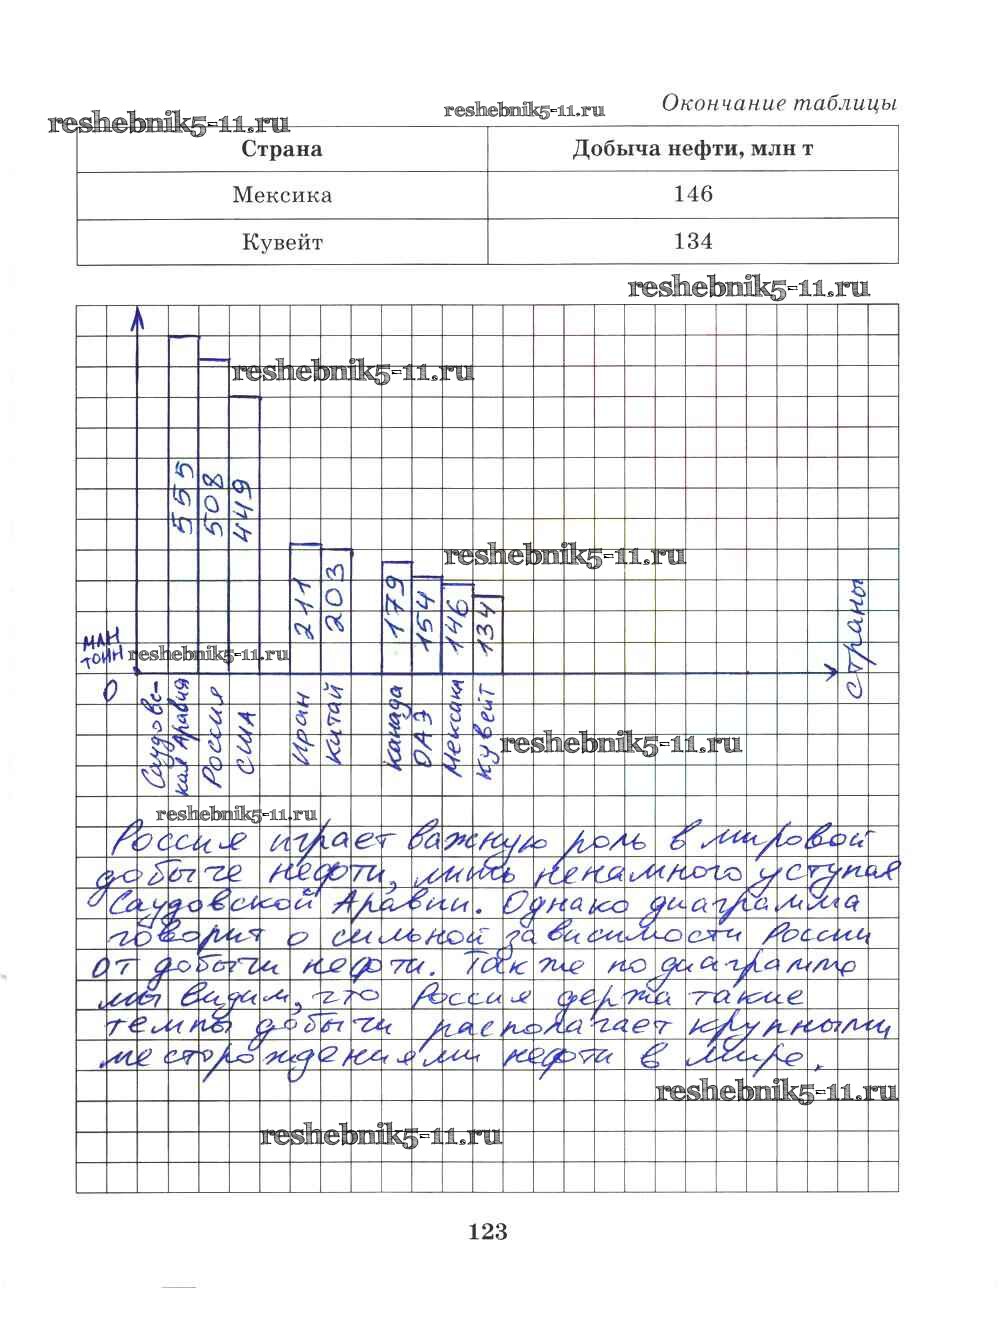 Окончание таблицы
reshebnik5-11.ru
reshebnik5-11.ru
Страна Добыча нефти, млн т
Мексика 146
Кувейт 134
reshebnik5-11.ru
reshebnik5-11.ru
555
508
449
reshebnik5-11.ru
211
203
179
154
146
134
млн
тонн
reshebnik5-11.ru
страны
0
Саудовс-
кая Аравия
Россия
США
Иран
Китай
Канада
ОАЭ
Мексика
Кувейт
reshebnik5-11.ru
reshebnik5-11.ru
Россия играет важную роль в мировой
добыче нефти, лишь ненамного уступая
Саудовской Аравии. Однако диаграмма
говорит о сильной зависимости России
от добычи нефти. Также по диаграмме
мы видим, что Россия держа такие
темпы добычи располагает крупными
месторождениями нефти в мире.
reshebnik5-11.ru
reshebnik5-11.ru
123